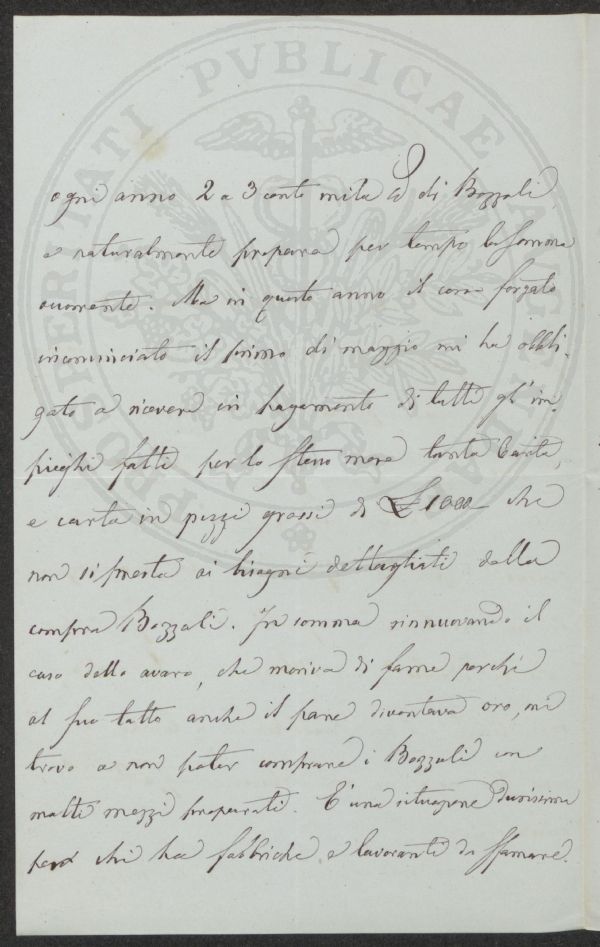 PROSPERITATI PVBLICAE
ogni anno 2 a 3 cento mila di Bozzoli,
e naturalmente prepara per tempo la somma
occorrente. Ma in questo anno il corso forzato
incominciato il primo di maggio mi ha obbli-
gato a ricevere in pagamento di tutti gl'im-
pieghi fatti per lo stesso mese tanta Carta,
e carta in pezzi grossi di £ 1000 che
non si presta ai bisogni dettagliati della
compra Bozzoli. In somma rinnuovando il
caso dello avaro, che moriva di fame perchè
al suo tatto anche il pane diventava oro, mi
trovo a non poter comprare i Bozzoli con
molti mezzi preparati. È una situazione durissima
per chi ha fabbriche e lavoranti da sfamare.